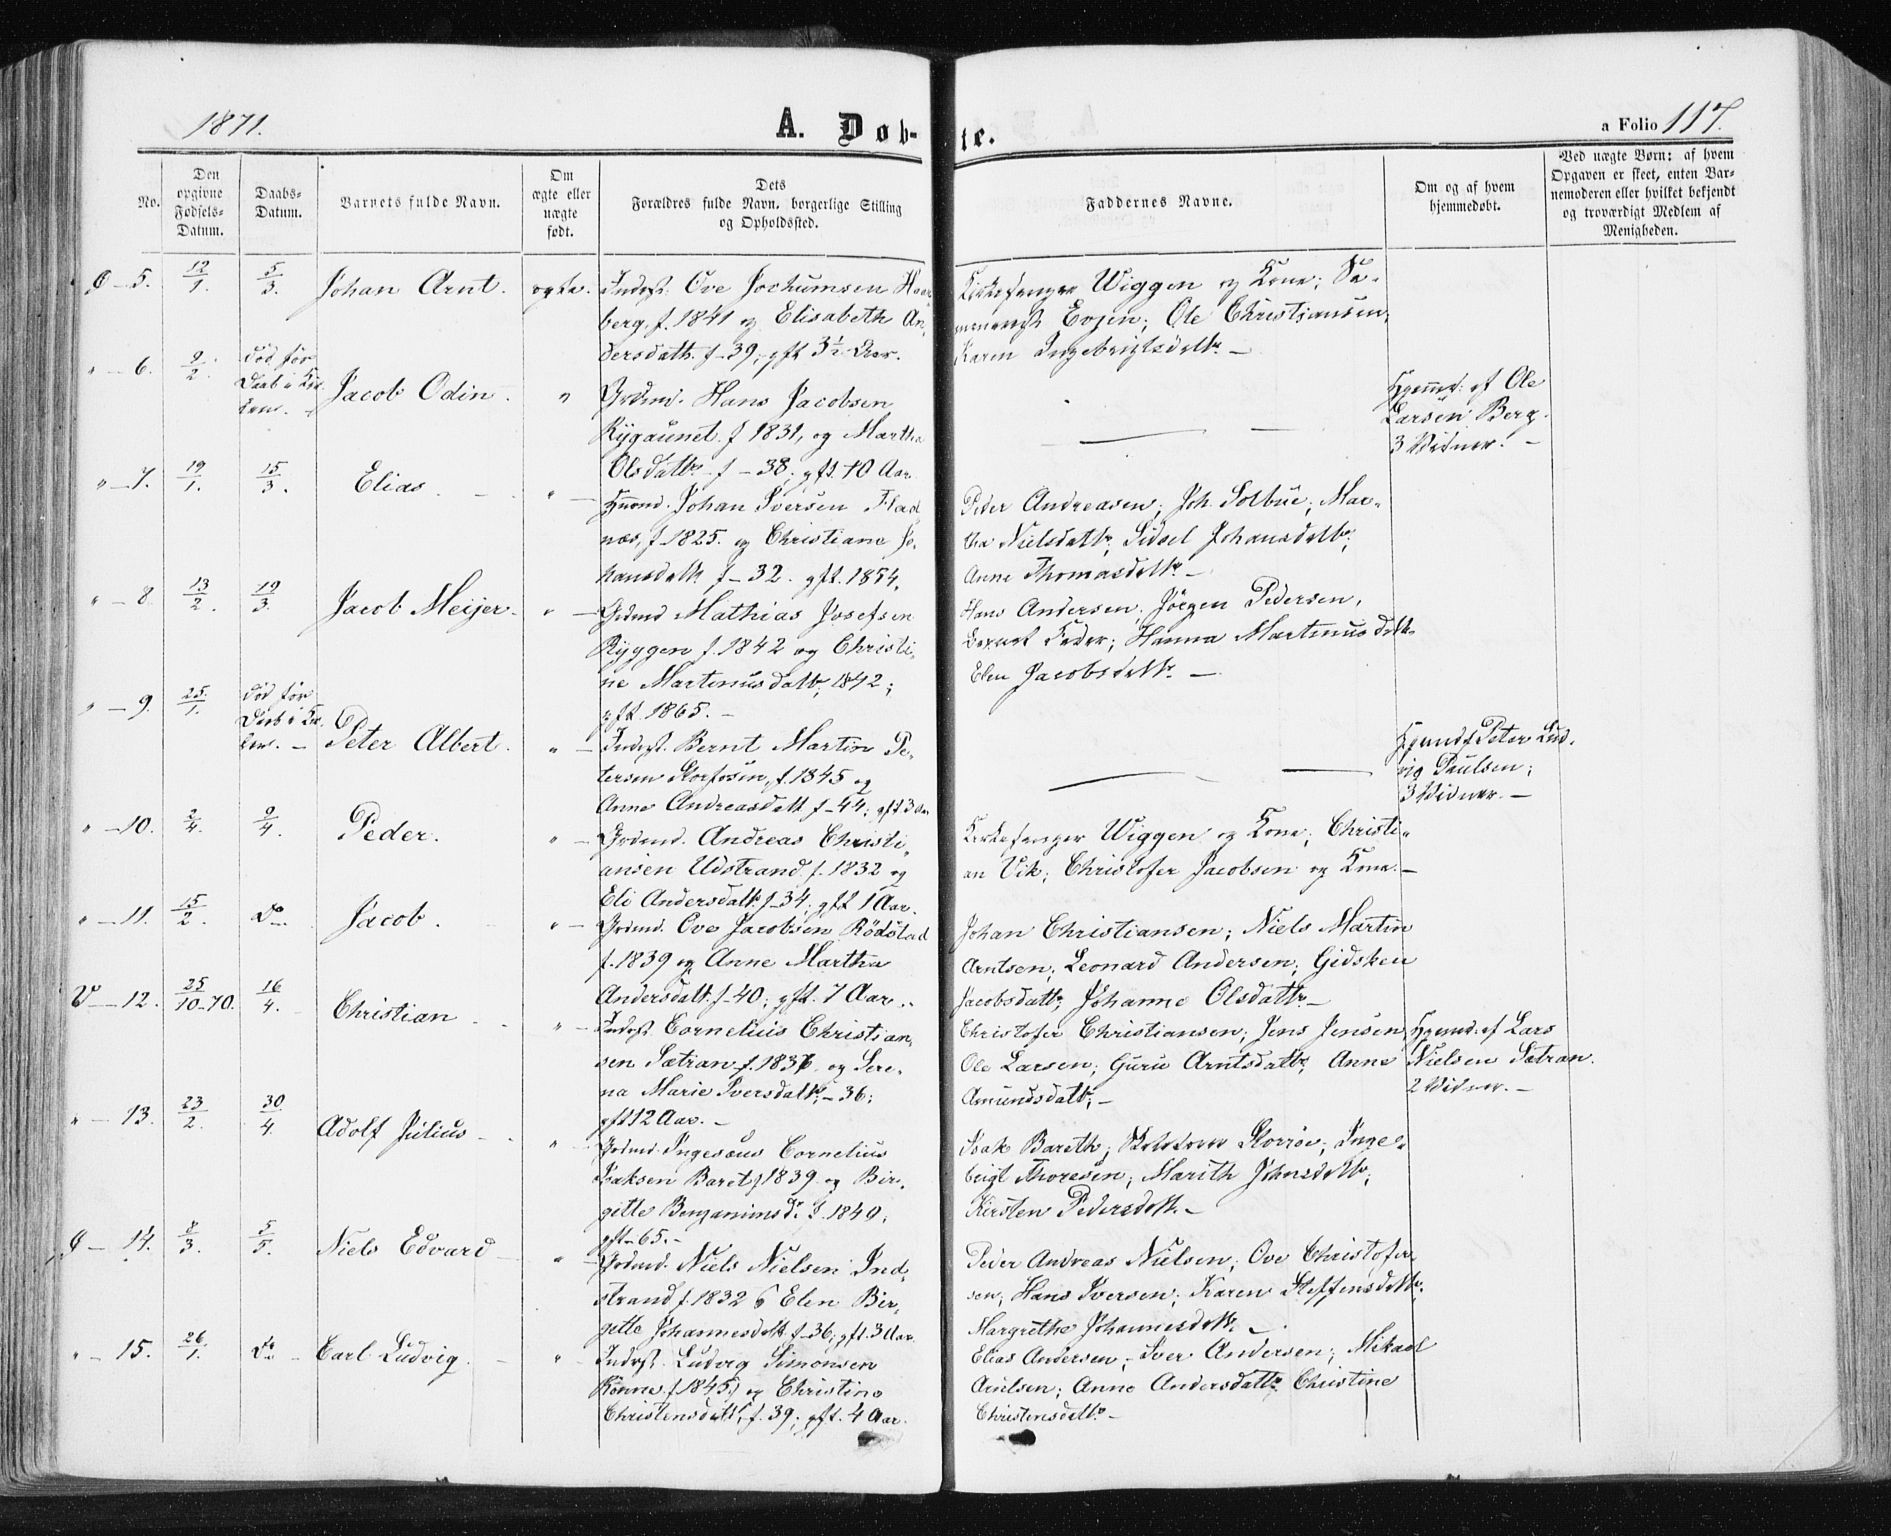 1871.
A. Døb-
te.
a Folio 117.
No.
Den opgivne Fødsels-Datum.
Daabs-Datum.
Barnets fulde Navn.
Om ægte eller uægte født.
Dets Forældres fulde Navn, borgerlige Stilling og Opholdssted.
Faddernes Navne.
Om og af hvem hjemmedøbt.
Ved uægte Børn: af hvem Opgaven er skeet, enten Bar-
nemoderen eller hvilket bekjendt og troværdigt Medlem af Menigheden.
Ø – 5. 12/1. 5/3. Johan Arnt. ægte.
Inderst. Ove Jochumsen
berg, f. 1841 og Elisabeth An-
dersdatt. f – 39; gft 3½ Aar.
Kirkesanger Wiggen og Kone;
Evjen; Ole Christiansen;
Karen Ingebrigtsdattr. –
" – 6. 9/2. død før
Daab i Kir-
ken. – Jacob Odin. "
Grdmd. Hans Jacobsen
Rygaunet. f 1831, og Martha
Olsdattr. f – 38; gft. 10 Aar
Hjemmed: af Ole
Larsen Berg.
3 Vidner. –
" – 7. 19/1. 15/3. Elias. "
Husmd. Johan Iversen Flad
næs, f 1825. og Christiane Jo-
hansdatt f – 32. gft. 1854.
Peder Andreasen; Joh. Solbue; Mar-
tha Nielsdattr; Sidsel Johansdattr;
Anne Thomasdattr. –
" – 8. 13/2. 19/3. Jacob Meijer. "
Grdmd Mathias Josefsen
Ryggen f. 1842 og Christi-
ne Martinusdattr; 1842;
gft. 1865. –
Hans Andersen; Jørgen Pedersen,
Barnets Fader; Hanna Martinusdatt.
Elen Jacobsdattr. –
" – 9. 25/1. død før
Daab i Kir-
ken. – Peter Albert. "
Inderst. Bernt Martin Pe-
tersen Storfosen, f. 1845 og
Anne Andreasdatt f – 44; gft 3 Aar
Hjemmd. af Peter Lud-
vig Paulsen;
3 Vidner. –
" – 10. 2/4. 9/4. Peder. "
Grdmd. Andreas Christi-
ansen Udstrand f. 1832 og
Eli Andersdatt. f – 34; gft 1 Aar.
Kirkesanger Wiggen og Kone; Christi-
an Vik; Christofer Jacobsen og Kone. –
" – 11. 15/2. Do. Jacob. "
Grdmd. Ove Jacobsen Rödstad
f. 1839 og Anne Martha
Andersdatt. f – 40; gft. 7 Aar.
Johan Christiansen; Niels Martin
Arntsen; Leonard Andersen; Gidsken
Jacobsdatt; Johanne Olsdattr. –
V – 12. 25/10–70. 16/4. Christian "
Inderst. Cornelius Christian-
sen Sætran f. 1836 og Sere-
na Marie Iversdatt; – 36;
gft 12 Aar. –
Christofer Christiansen; Jens Jensen;
Ole Larsen; Guru Arntsdatt; Anne
Amundsdatt; –
Hjemmd: af Lars
Nielsen Sætran.
2 Vidner. –
" – 13. 23/2. 30/4. Adolf Julius "
Grdmd. Ingeraus Cornelius
Isaksen Baret f 1839 og Bir-
gitte Benjaminsdr. f. 1840;
gft – 65. –
Isak Bareth; Storrøe; Inge-
brigt Thoresen; Marith Johnsdattr;
Kirsten Pedersdatt. –
Ø – 14. 8/3. 5/5. Niels Edvard "
Grdmd. Niels Nielsen Ind-
strand f. 1832 & Elen Bir-
gitte Johannesdatt f – 36; gft. 3 Aar.
Peder Andreas Nielsen; Ove Christofer-
sen; Hans Iversen; Karen Steffensdatt;
Margrethe Johannesdatt. –
" – 15. 26/1. Do. Carl Ludvig. "
Inderst. Ludvig Simonsen
Rönne f 1845 og Christine
Christensdatt, f. 39; gft. 4 Aar.
Elias Andersen; Iver Andersen; Mikael
Arntsen; Anne Andersdatt; Christine
Christensdattr. –